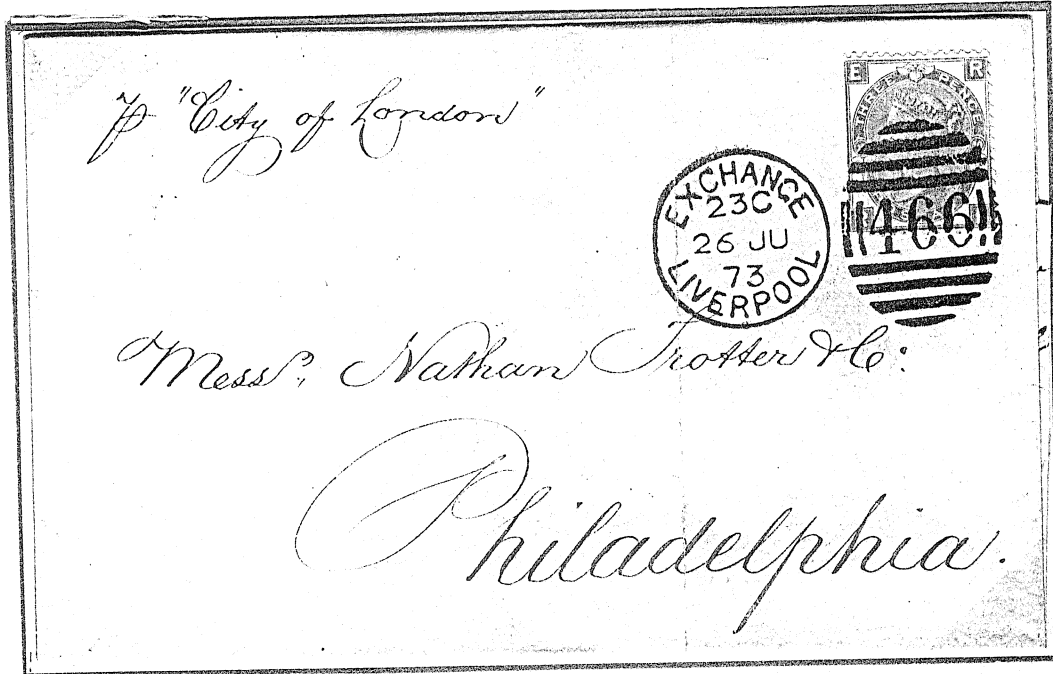 p "City of London"
E R
THREE PENCE
EXCHANGE
23C
26 JU
73
LIVERPOOL
466
Messrs. Nathan Trotter & Co.
Philadelphia.